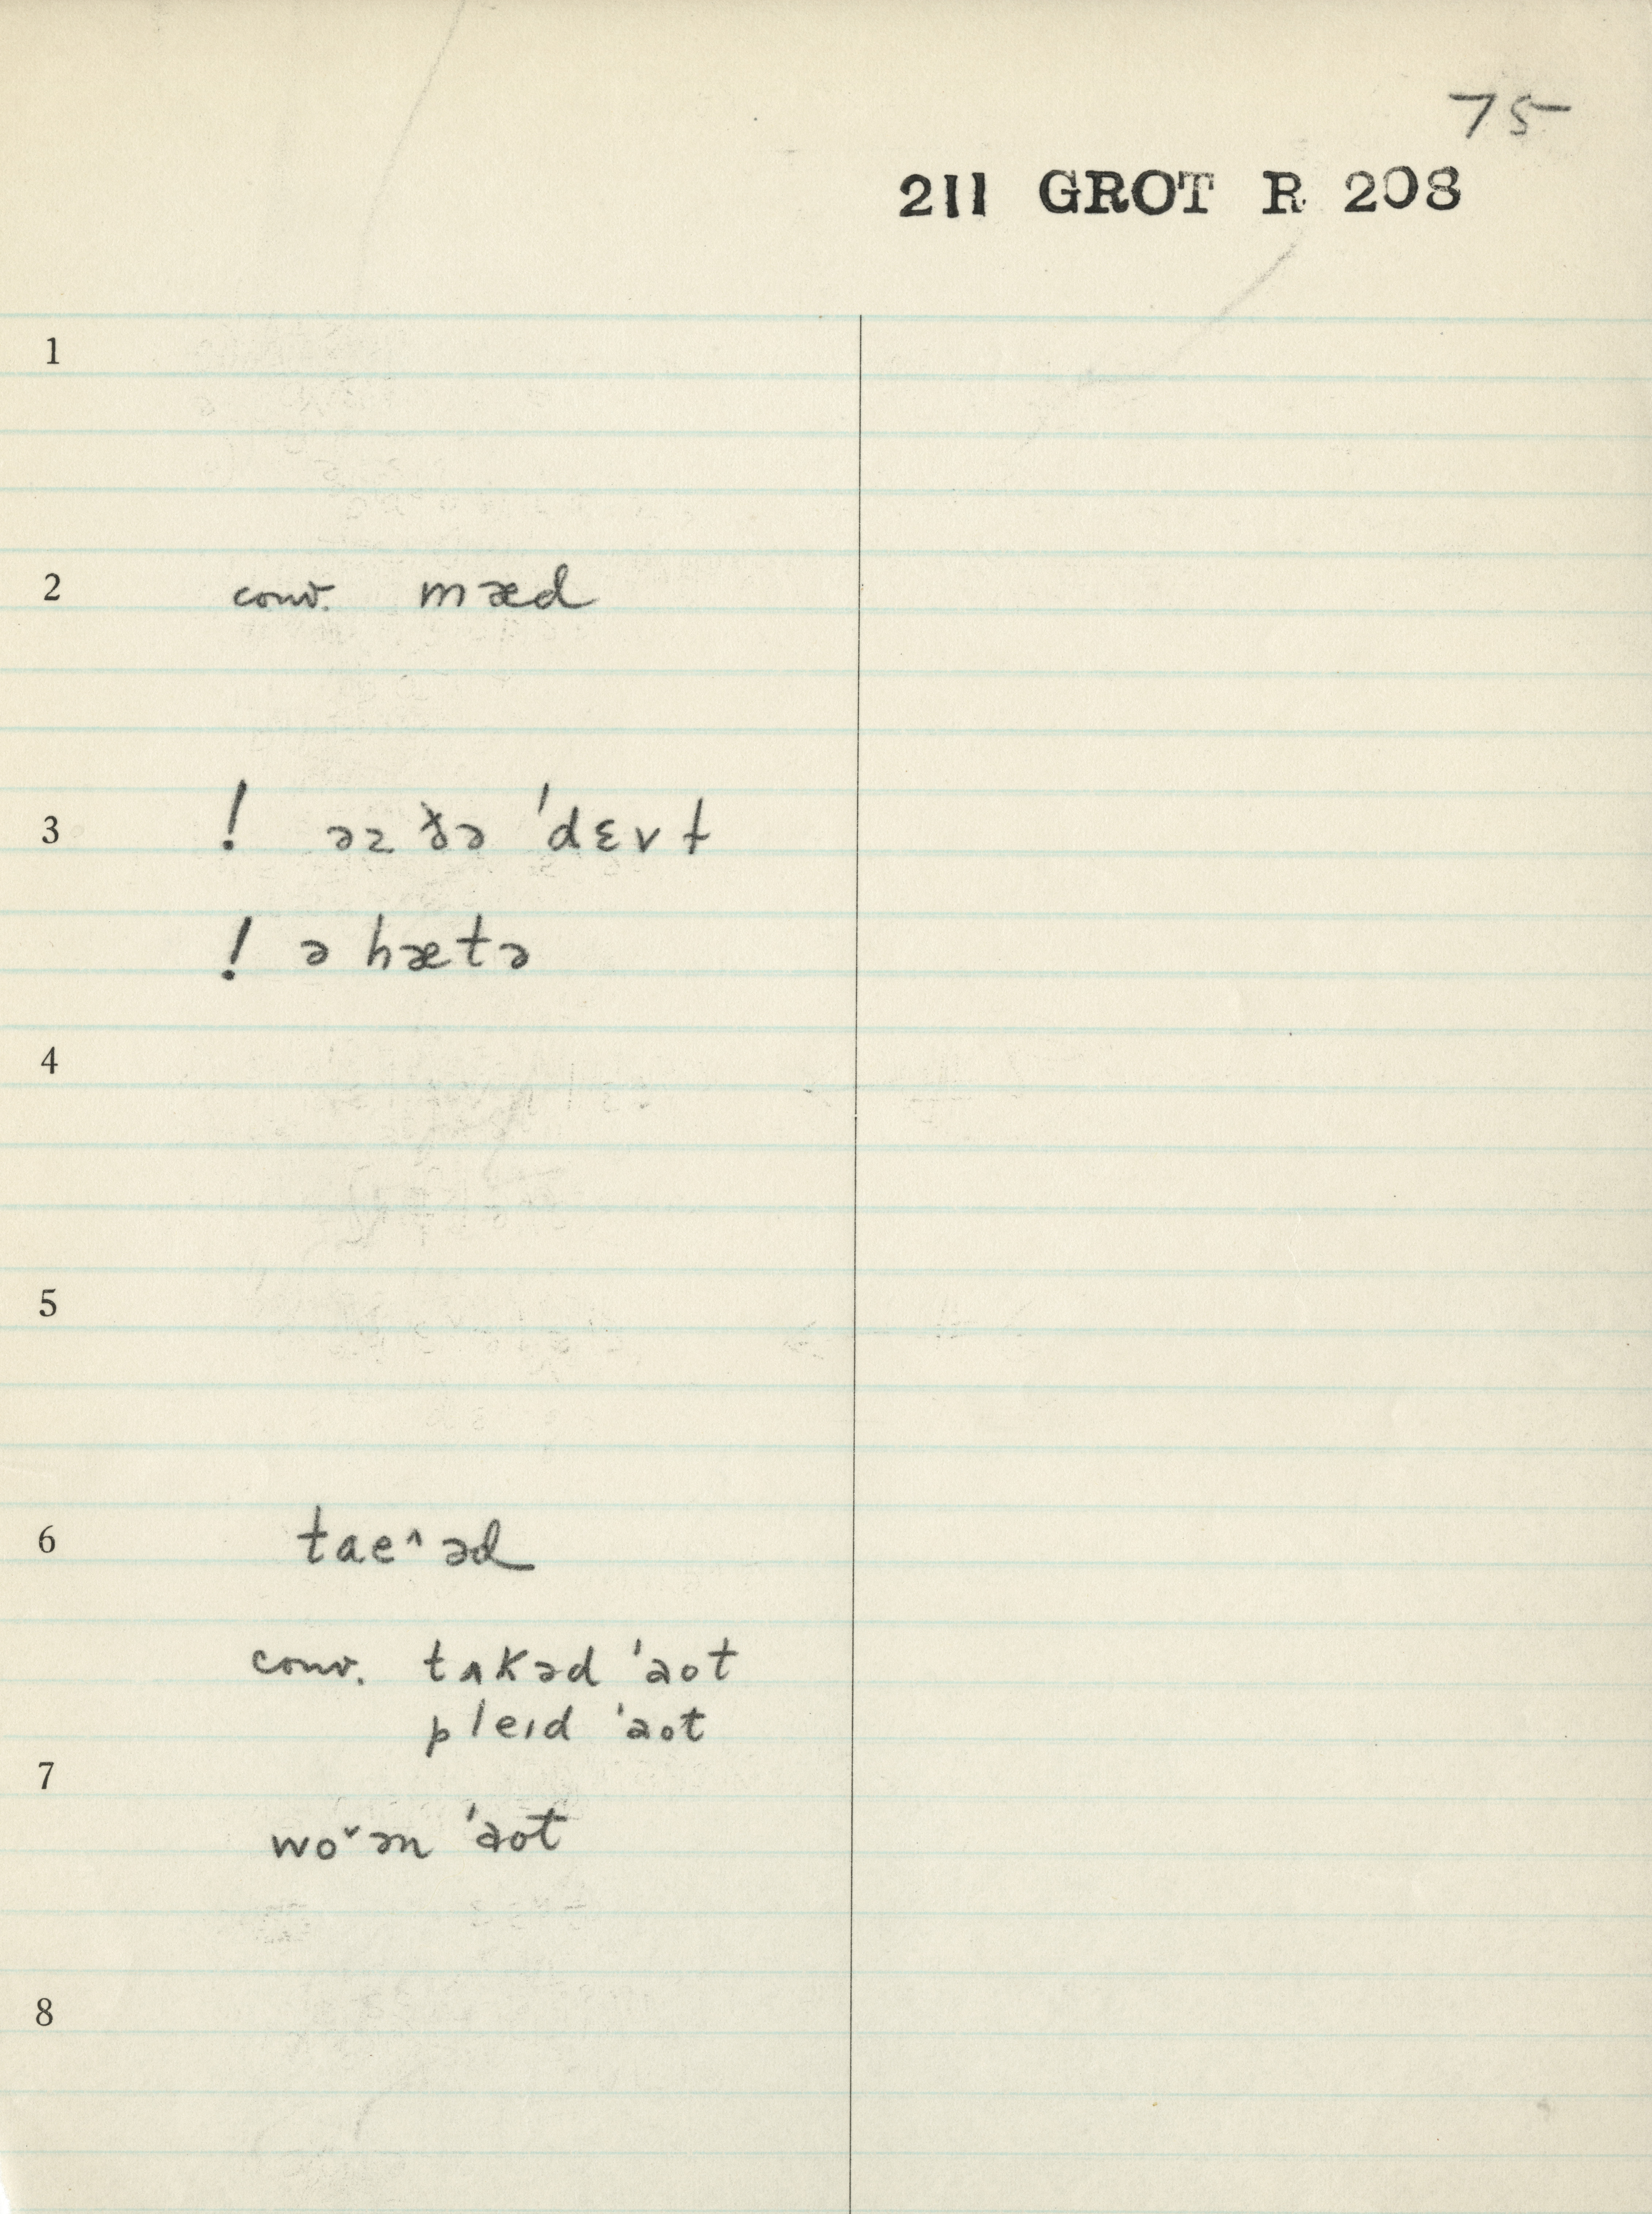 75
211 GROT R 208
1
2 conv. mæd
3 ! əz ðə 'dɛvɫ
! ə hætə
4
5
6 tae^əd
conv. tʌkəd 'aot
pleɪd 'aot
7
woˇən 'aot
8